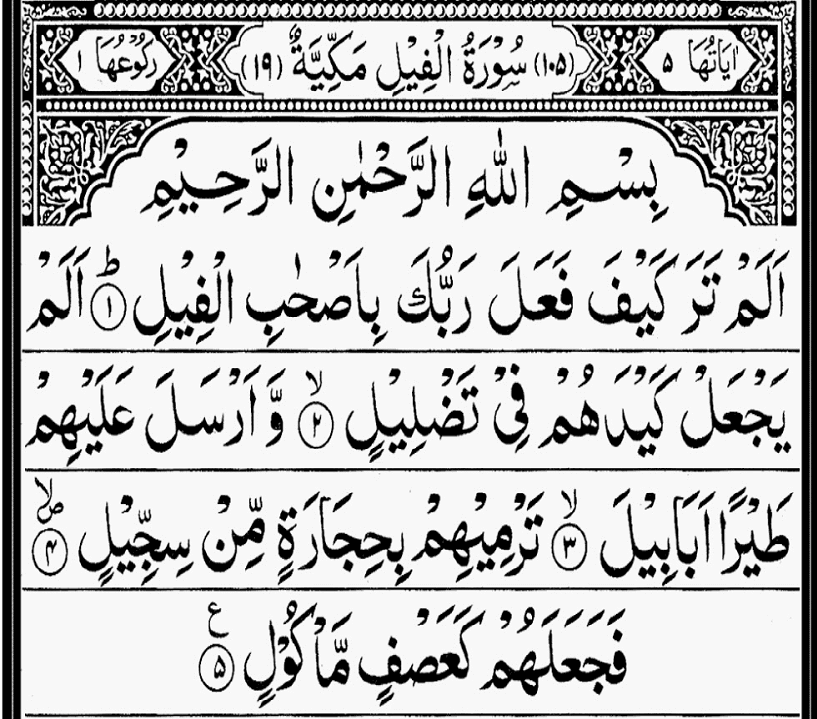 اٰيَاتُهَا ۵ (۱۰۵) سُوْرَةُ الْفِيْلِ مَكِّيَّةٌ (۱۹) رَكُوْعُهَا ۱
بِسْمِ اللهِ الرَّحْمٰنِ الرَّحِيْمِ
اَلَمْ تَرَ كَيْفَ فَعَلَ رَبُّكَ بِاَصْحٰبِ الْفِيْلِ ؕ ۱ اَلَمْ
يَجْعَلْ كَيْدَهُمْ فِيْ تَضْلِيْلٍ ۙ ۲ وَّاَرْسَلَ عَلَيْهِمْ
طَيْرًا اَبَابِيْلَ ۙ ۳ تَرْمِيْهِمْ بِحِجَارَةٍ مِّنْ سِجِّيْلٍ ۙ ص ۴
فَجَعَلَهُمْ كَعَصْفٍ مَّاْكُوْلٍ ع ۵